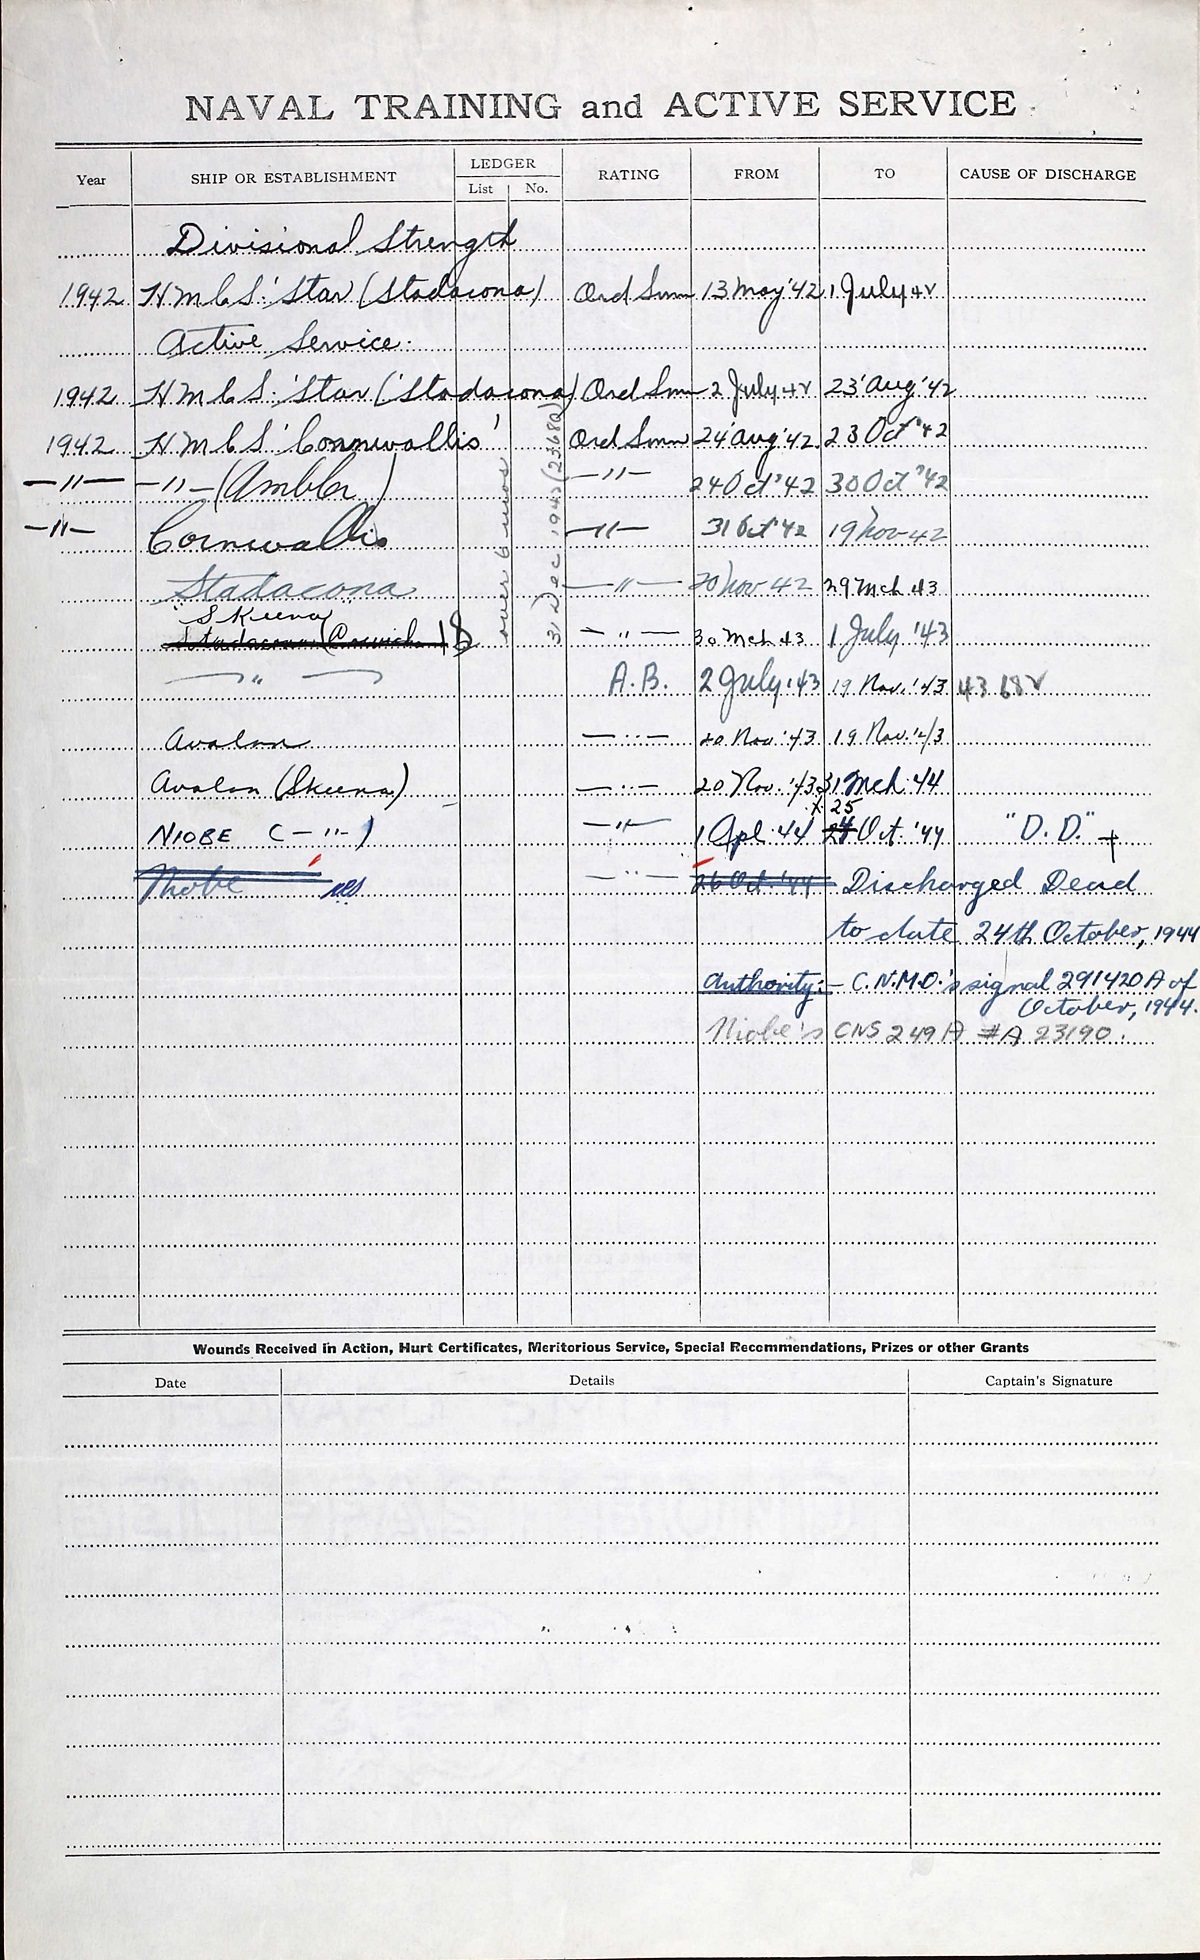 NAVAL TRAINING and ACTIVE SERVICE
Year SHIP OR ESTABLISHMENT LEDGER List No. RATING FROM TO CAUSE OF DISCHARGE
Divisional Strength
1942 H M C S. 'Star (Stadacona) Ord Smn 13 May '42 1 July 42
Active Service.
1942 H M C S. 'Star ('Stadacona) Ord Smn 2 July 42 23 Aug '42
1942 H M C S 'Cornwallis' Ord Smn 24 Aug '42 23 Oct '42
—"— —"— (Ambler) —"— 24 Oct '42 30 Oct '42
—"— Cornwallis —"— 31 Oct '42 19 Nov 42
Stadacona —"— 20 Nov 42 29 Mch 43
Skeena
Stadacona —"— 30 Mch 43 1 July '43
—"— A.B. 2 July '43 19 Nov. '43
over 6 mos
31 Dec 1942
Avalon —"— 20 Nov '43 19 Nov. '43
Avalon (Skeena) —"— 20 Nov. '43 31 Mch '44
x 25
NIOBE (—"—) —"— 1 Apl '44 24 Oct. '44 "D. D."
Niobe —"— 26 Oct. '44 Discharged Dead
to date 24th October, 1944
Authority:- C.N.M.O.'s signal 291420A of
October, 1944.
Niobe's CNS 249 A #A 23190.
Wounds Received in Action, Hurt Certificates, Meritorious Service, Special Recommendations, Prizes or other Grants
Date Details Captain's Signature